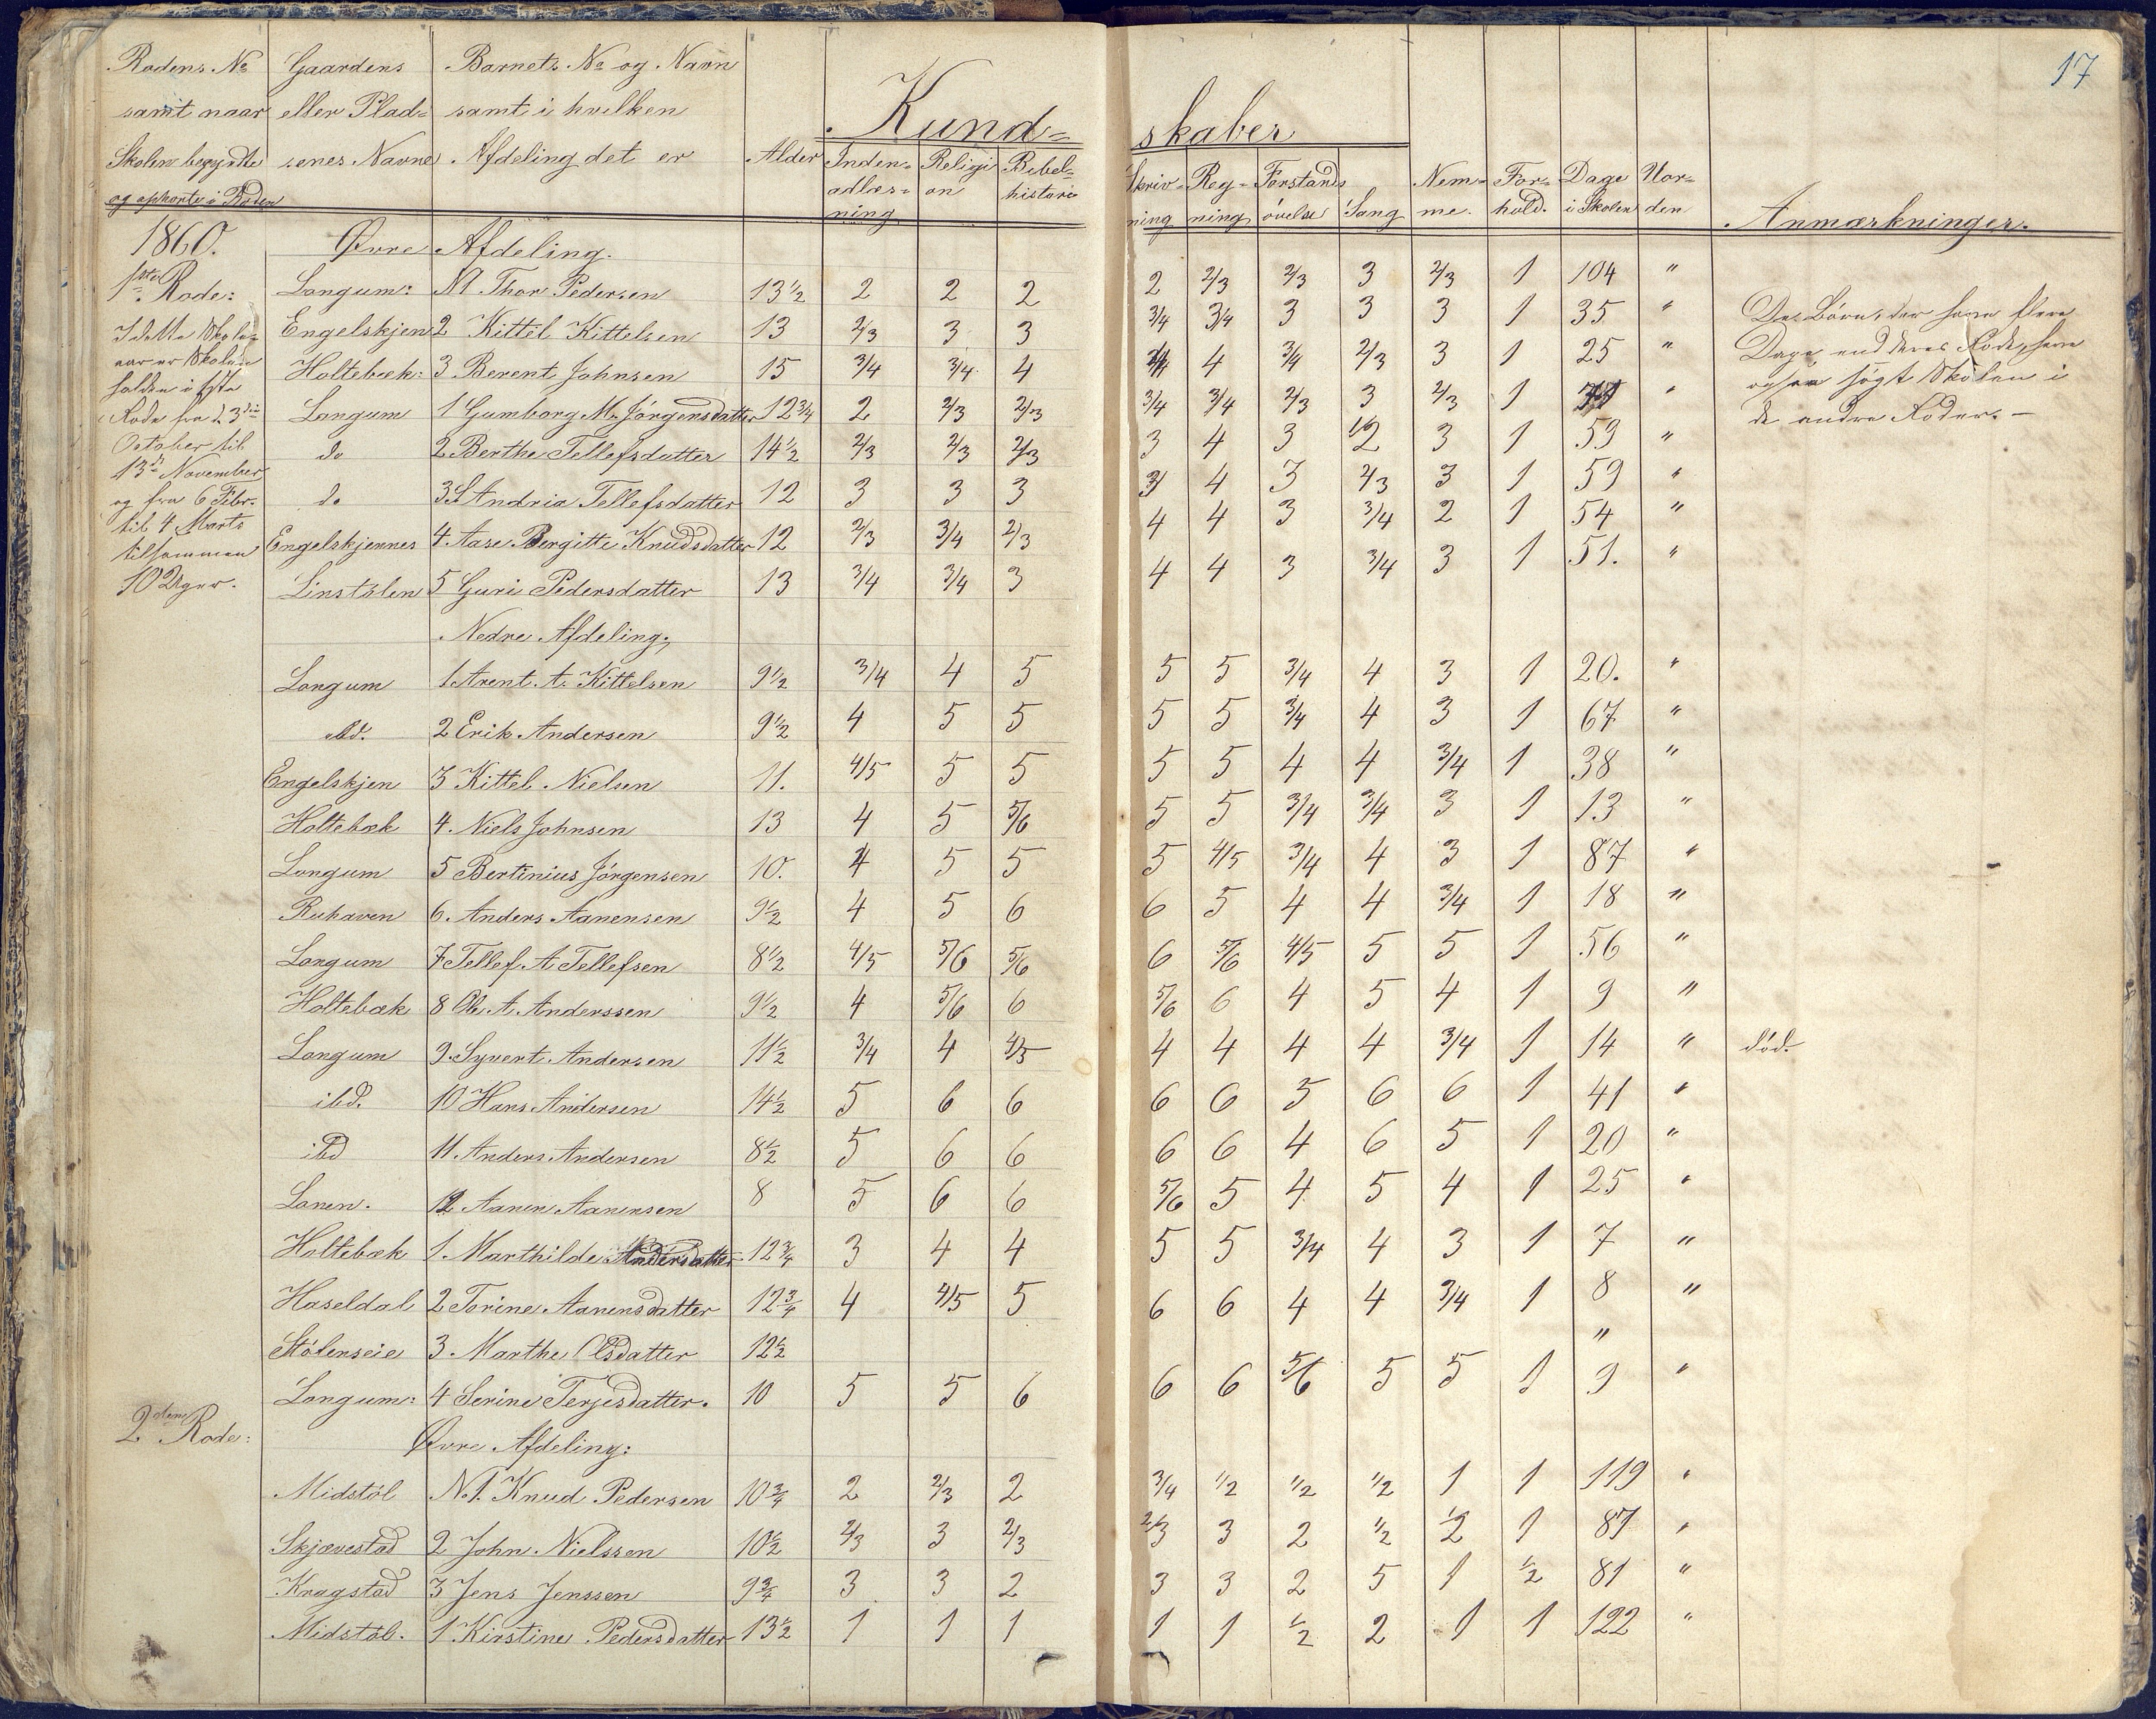 17
Rodens No Gaardens Barnets No og Navn
samt naar eller Plad= samt i hvilken Kund= skaber
Skolen begyndte senes Navne Afdeling det er Alder Inden= Religi Bibel= Skriv= Reg= Forstands Nem= For= Dage Vor=
og ophørte i Roden adlæs= on historie ning ning øvelse Sang me. hold. i Skolen den Anmærkninger.
ning
1860. Øvre Afdeling.
1ste Rode: Langum: N1 Thor Pedersen 13½ 2 2 2 2 2/3 2/3 3 2/3 1 104 "
I dette Skole= Engelskjen 2 Kittel Kittelsen 13 2/3 3 3 3/4 3/4 3 3 3 1 35 " De Børn, der have flere
aar er Skolen Holtebæk: 3 Berent Johnsen 15 3/4 3/4 4 3/4 4 3/4 2/3 3 1 25 " Dage end deres Rode, have
holden i første Langum 1 Gumborg M. Jørgensdatter 12¾ 2 2/3 2/3 3/4 3/4 2/3 3 2/3 1 " ogsaa søgt Skolen i
Rode fra d. 3die do 2 Berthe Tellefsdatter 14½ 2/3 2/3 2/3 3 4 3 2 3 1 59 " de andre Roder. —
October til
13de November do 3 S Andria Tellefsdatter 12 3 3 3 3 4 3 2/3 3 1 59 "
og fra 6 Febr.
til 4 Marts Engelskjennes 4. Aase Bergitte Knudsdatter 12 2/3 3/4 2/3 4 4 3 3/4 2 1 54 "
tilsammen
10 Uger. Linstølen 5 Guri Pedersdatter 13 3/4 3/4 3 4 4 3 3/4 3 1 51. "
Nedre Afdeling.
Langum 1 Arent A. Kittelsen 9½ 3/4 4 5 5 5 3/4 4 3 1 20. "
ibd. 2 Erik Andersen 9½ 4 5 5 5 5 3/4 4 3 1 67 "
Engelskjen 3 Kittel Nielsen 11. 4/5 5 5 5 5 4 4 3/4 1 38 "
Holtebæk 4. Niels Johnsen 13 4 5 5/6 5 5 3/4 3/4 3 1 13 "
Langum 5 Bertinius Jörgensen 10. 4 5 5 5 4/5 3/4 4 3 1 87 "
Ruhaven 6. Anders Aanensen 9½ 4 5 6 6 5 4 4 3/4 1 18 "
Langum 7 Tellef A Tellefsen 8½ 4/5 5/6 5/6 6 5/6 4/5 5 5 1 56 "
Holtebæk 8 Ole A. Anderssen 9½ 4 5/6 6 5/6 6 4 5 4 1 9 "
Langum 9. Syvert Andersen 11½ 3/4 4 4/5 4 4 4 4 3/4 1 14 " död.
ibd. 10 Hans Andersen 14½ 5 6 6 6 6 5 6 6 1 41 "
ibd 11. Anders Andersen 8½ 5 6 6 6 6 4 6 5 1 20 "
Lanen. 12 Aanen Aanensen 8 5 6 6 5/6 5 4 5 4 1 25 "
Holtebæk 1. Marthilde Andersdatter 12¾ 3 4 4 5 5 3/4 4 3 1 7 "
Haseldal 2 Torine Aanensdatter 12¾ 4 4/5 5 6 6 4 4 3/4 1 8 "
Stölenseie 3. Marthe Olsdatter 12½ "
Langum: 4 Serine Terjesdatter. 10 5 5 6 6 6 5/6 5 5 1 9 "
2den Rode: Øvre Afdeling:
Midstöl N.1. Knud Pedersen 10¾ 2 2/3 2 3/4 1/2 1/2 1/2 1 1 119 "
Skjævestad 2 John Nielssen 10½ 2/3 3 2/3 2/3 3 2 1/2 1/2 1 87 "
Kragstad 3 Jens Jenssen 9¾ 3 3 2 3 3 2 5 1 1/2 81 "
Midstöl. 1 Kirstine Pedersdatter 13½ 1 1 1 1 1 1/2 2 1 1 122 "